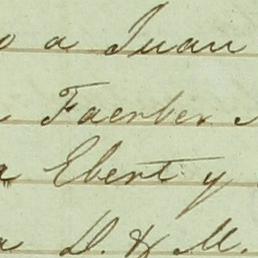 o a Juan
Faerber
a Ebert y
a D. & M.